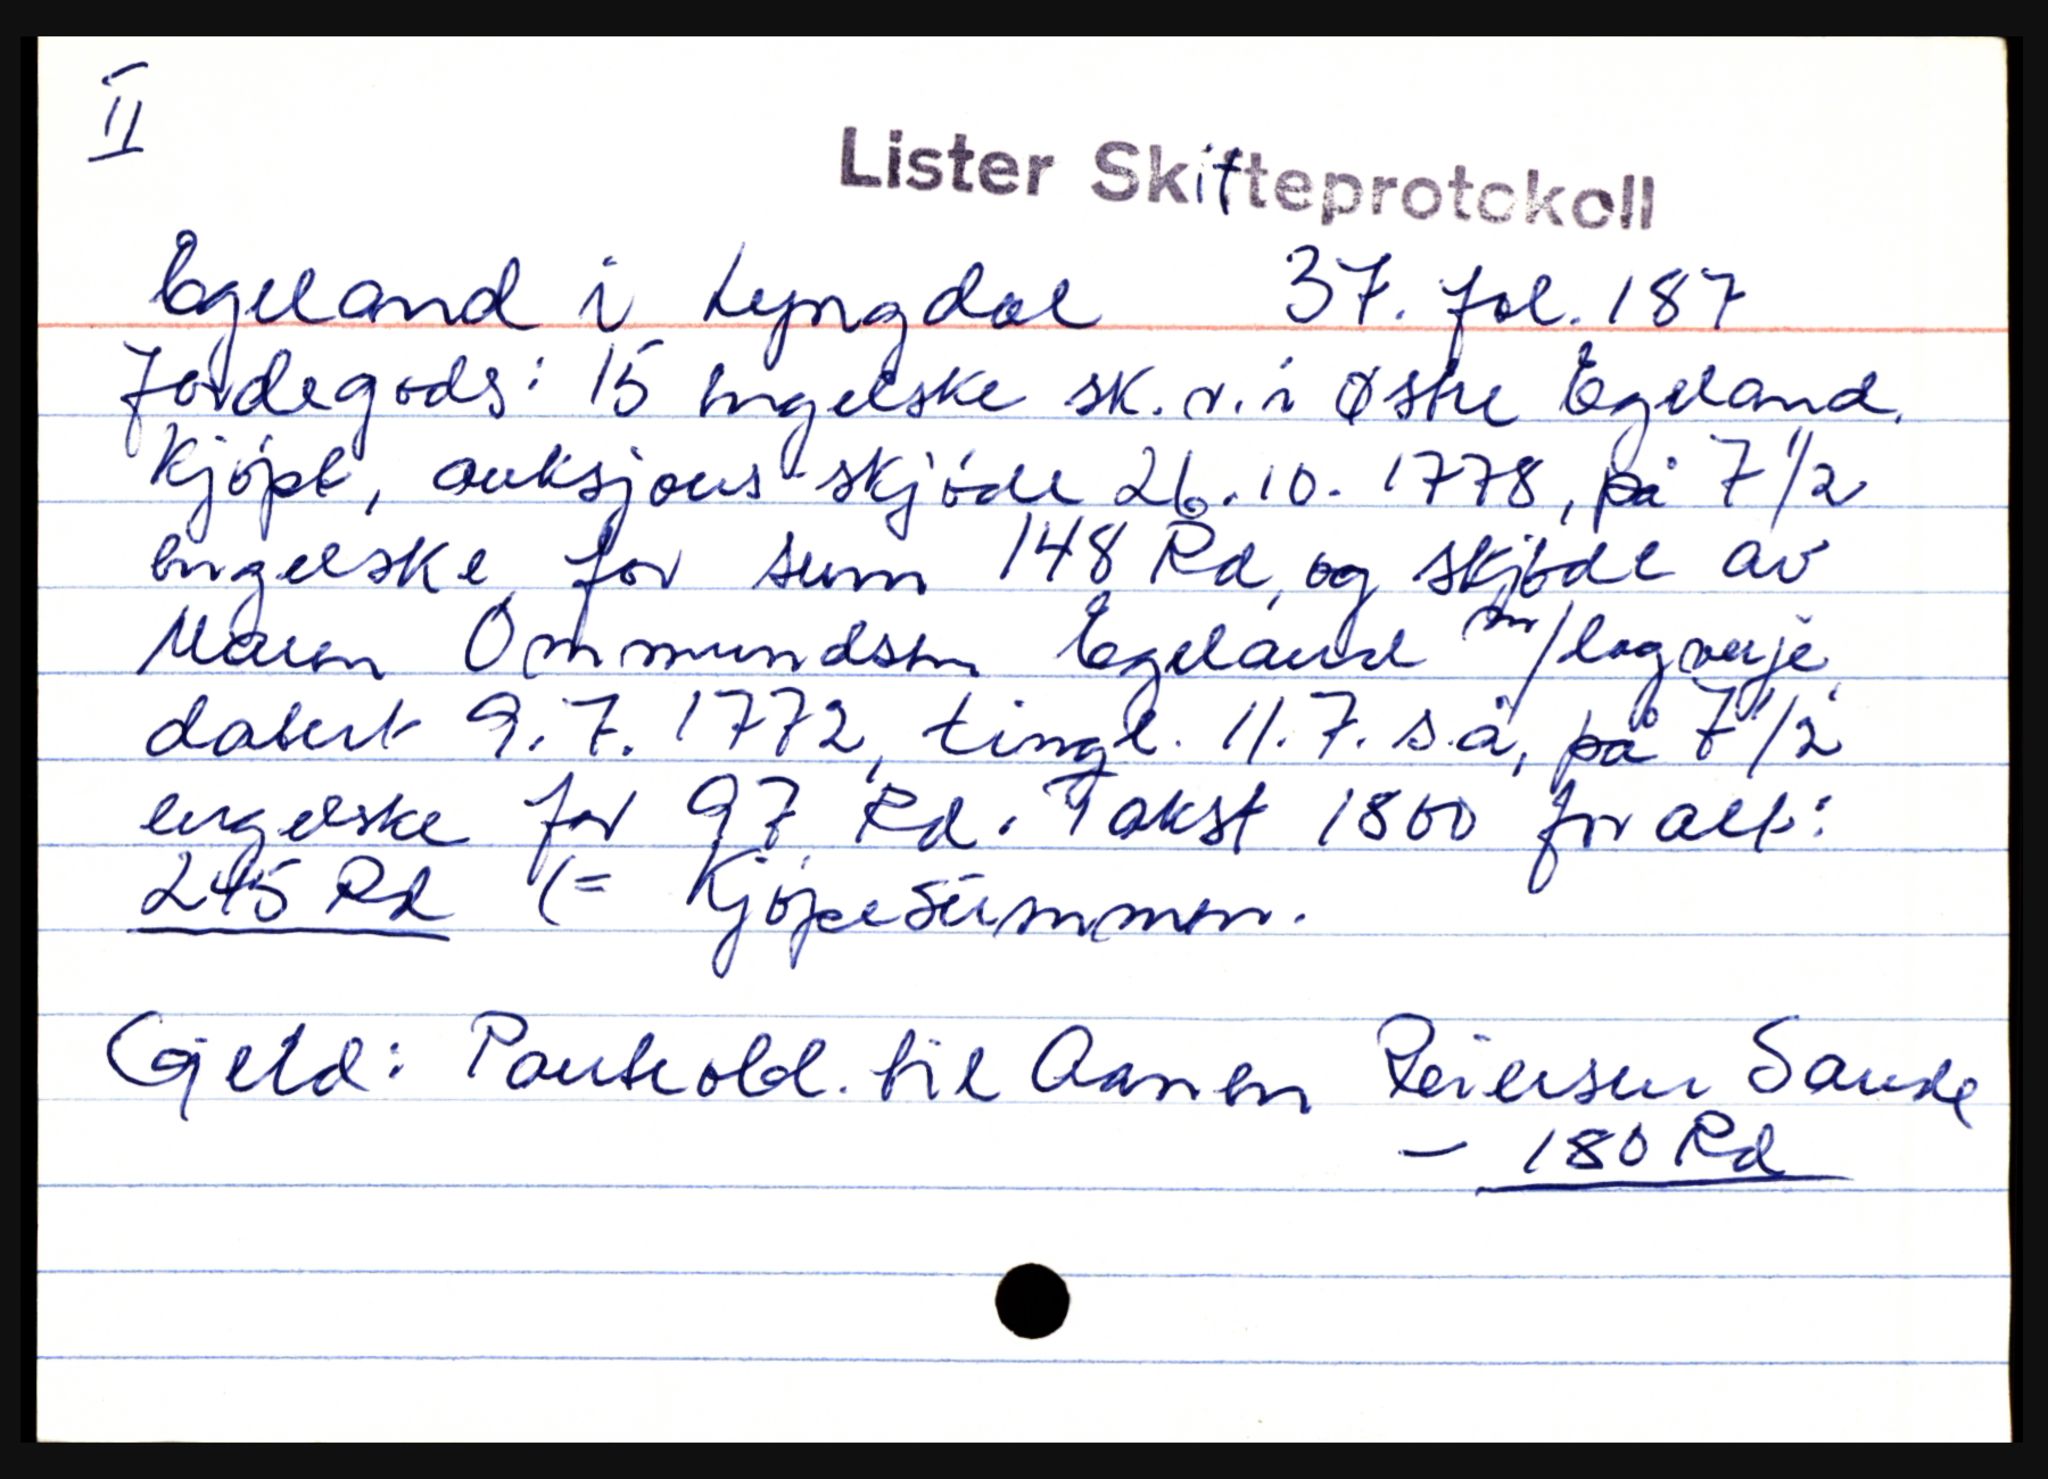 II
Lister Skifteprotokoll
Egeland i Lyngdal 37. fol. 187
Jordegods: 15 engelske sk. r. i Østre Egeland.
Kjöpt, auksjons skjöde 26.10. 1778, på 7 1/2
engelske for sum 148 Rd, og skjöde av
Maren Ommundsen Egeland m/lagverje,
datert 9.7. 1772, tingl. 11.7. s.å, på 7 1/2
engelske for 97 Rd. Takst 1800 for alt:
245 Rd (= Kjöpesummen.
Gjeld: Panteobl. til Aanen Reiersen Sande
- 180 Rd